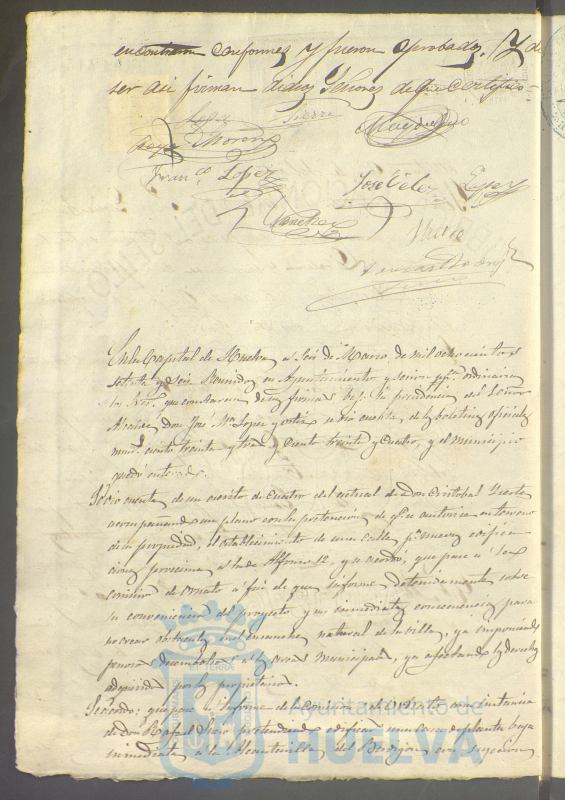 encontraron conformes y fueron aprobados. Y de
ser asi firman dichos Señores de que certifico =
Lopez
Sierra
Moreno
Franco. Lopez
Jose Velez
Lopez
Sanchez
En la Capital de Huelva a seis de Marzo de mil ochocientos
setenta y seis Reunidos en Ayuntamiento y sesion ppca. ordinaria
los Sres. que constaran de sus firmas bajo la presidencia del Señor
Alcalde Don José Ma. Lopez y Ortiz se dio cuenta de los boletines oficiales
nums. ciento treinta y tres y ciento treinta y cuatro, y el municipio
quedó enterado.
Se dio cuenta de un escrito de cuatro del actual de Don Cristobal
acompañando un plano con la pretencion de que se autorice en terreno
de su propiedad, el establecimiento de una calle pa. nuevas edifica
ciones proxima a la de Alfonso 12, y se acordó, que pase a la
comision de ornato a fin de que informe detenidamente sobre
la conveniencia del proyecto y sus inmediatas consecuencias para
no crear obstaculos en el ensanche natural de la villa, ya imponiendo
desembolsos a las arcas municipales, ya afectando los derechos
adquiridos por los propietarios.
Se acordó: que pase a informe de la Comision de Ornato una instancia
de Don Rafael pretendiendo edificar una casa de planta baja
inmediata a la Alcantarilla del
Ayuntamiento de
HUELVA